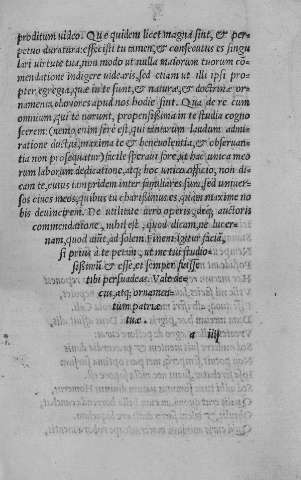 proditum video. Quæ quidem licet magna sint, & per-
petuo duratura: effecisti tu tamen, & consecutus es singu
lari virtute tua, non modo ut nulla maiorum tuorum cō-
mendatione indigere videaris, sed etiam ut illi ipsi pro-
pter, egregia, quæ in te sunt, & naturæ, & doctrinæ or-
namenta, clariores apud nos hodie sint. Qua de re cum
omnium, qui te norunt, propensissima in te studia cogno
scerem: (nemo, enim ferè est, qui tantarum laudum admi-
ratione ductus, maxima te & benevolentia, & observan-
tia non prosequatur) facile speravi fore, ut hac unica meo
rum laborum dedicatione, atq; hoc unico officio, non di-
cam te, cuius iampridem inter familiares sum, sed univer-
sos cives meos, quibus tu charissimus es, quàm maxime no
bis devincirem. De utilitate aero operis, quàm auctoris
commendatione, nihil est, quod dicam, ne lucer-
nam, quod aiūt, ad solem. Finem igitur faciā,
si prius à te petam, ut me tui studio-
sissimū & esse, et semper fuisse
tibi persuadeas. Vale de-
cus, atq; ornamen-
tum patriæ
tuæ.
a iiij